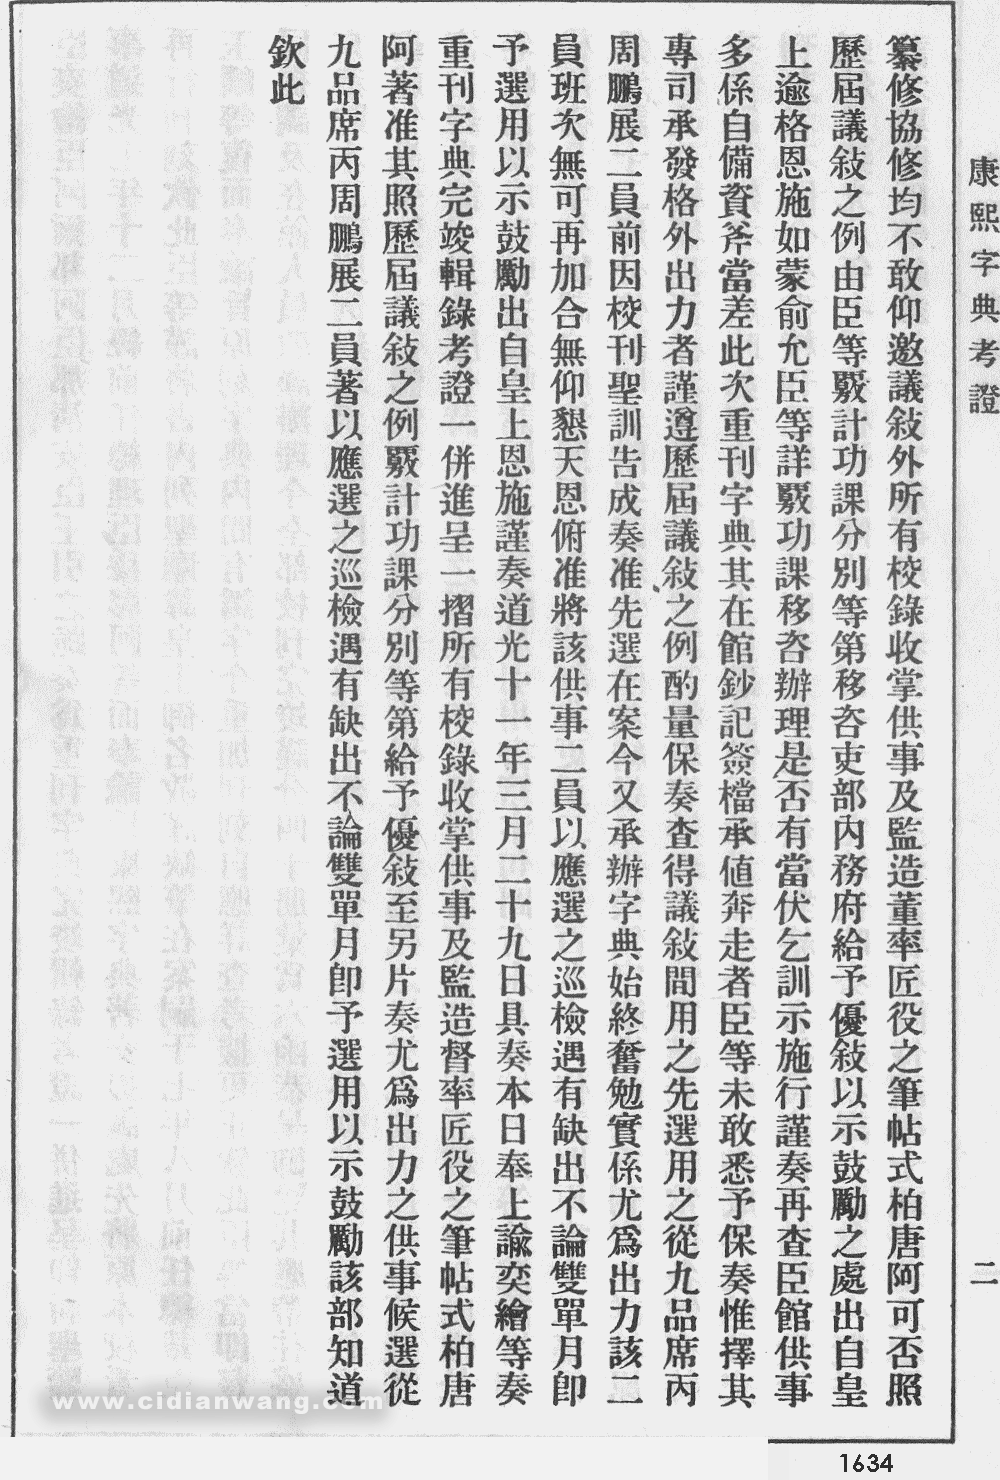 康熙字典考證
二
纂修協修均不敢仰邀議敍外所有校錄收掌供事及監造董率匠役之筆帖式柏唐阿可否照
歷屆議敍之例由臣等覈計功課分別等第移咨吏部內務府給予優敍以示鼓勵之處出自皇
上逾格恩施如蒙俞允臣等詳覈功課移咨辦理是否有當伏乞訓示施行謹奏再查臣館供事
多係自備資斧當差此次重刊字典其在館鈔記簽檔承値奔走者臣等未敢悉予保奏惟擇其
專司承發格外出力者謹遵歷屆議敍之例酌量保奏查得議敍間用之先選用之從九品席丙
周鵬展二員前因校刊聖訓告成奏准先選在案今又承辦字典始終奮勉實係尤爲出力該二
員班次無可再加合無仰懇天恩俯准將該供事二員以應選之巡檢遇有缺出不論雙單月卽
予選用以示鼓勵出自皇上恩施謹奏道光十一年三月二十九日具奏本日奉上諭奕繪等奏
重刊字典完竣輯錄考證一併進呈一摺所有校錄收掌供事及監造督率匠役之筆帖式柏唐
阿著准其照歷屆議敍之例覈計功課分別等第給予優敍至另片奏尤爲出力之供事候選從
九品席丙周鵬展二員著以應選之巡檢遇有缺出不論雙單月卽予選用以示鼓勵該部知道
欽此
www.cidianwang.com
1634